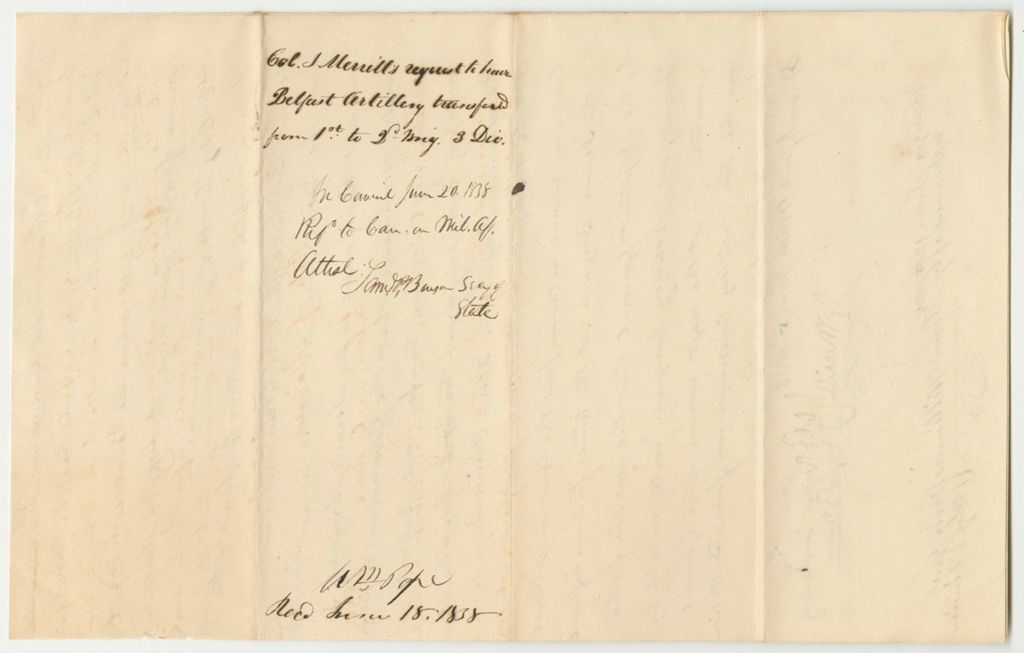 Col. J Merrill's request to have
Belfast Artillery transferd
from 1st. to 2d. Brig. 3 Div.
In Council June 20. 1838
Refd to Com. on Mil. Af.
Attest: Saml P. Benson Secy of
State
Wm Pope
Recd June 18. 1838